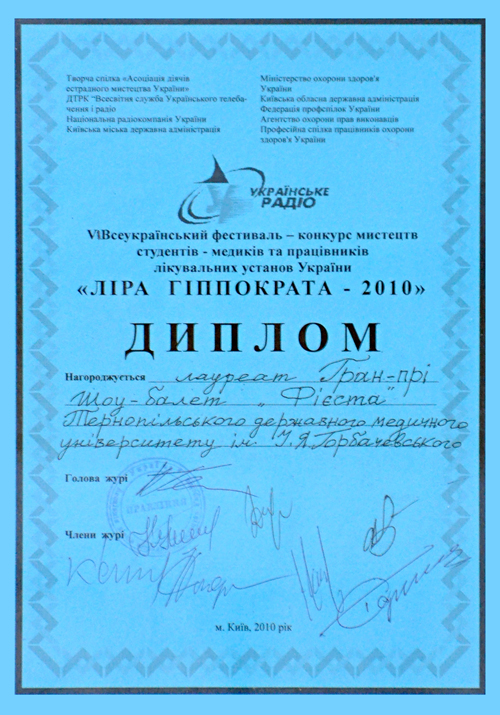 Творча спілка «Асоціація діячів
естрадного мистецтва України»
ДТРК "Всесвітня служба Українського телеба-
чення і радіо
Національна радіокомпанія України
Київська міська державна адміністрація
Міністерство охорони здоров'я
України
Київська обласна державна адміністрація
Федерація профспілок України
Агентство охорони прав виконавців
Професійна спілка працівників охорони
здоров'я України
УКРАЇНСЬКЕ
РАДІО
VІІВсеукраїнський фестиваль – конкурс мистецтв
студентів - медиків та працівників
лікувальних установ України
«ЛІРА ГІППОКРАТА - 2010»
ДИПЛОМ
Нагороджується лауреат Гран-прі
Шоу-балет „Фієста"
Тернопільського державного медичного
університету ім. І.Я.Горбачевського
Голова журі
ПРАВЛІННЯ
Члени журі
м. Київ, 2010 рік